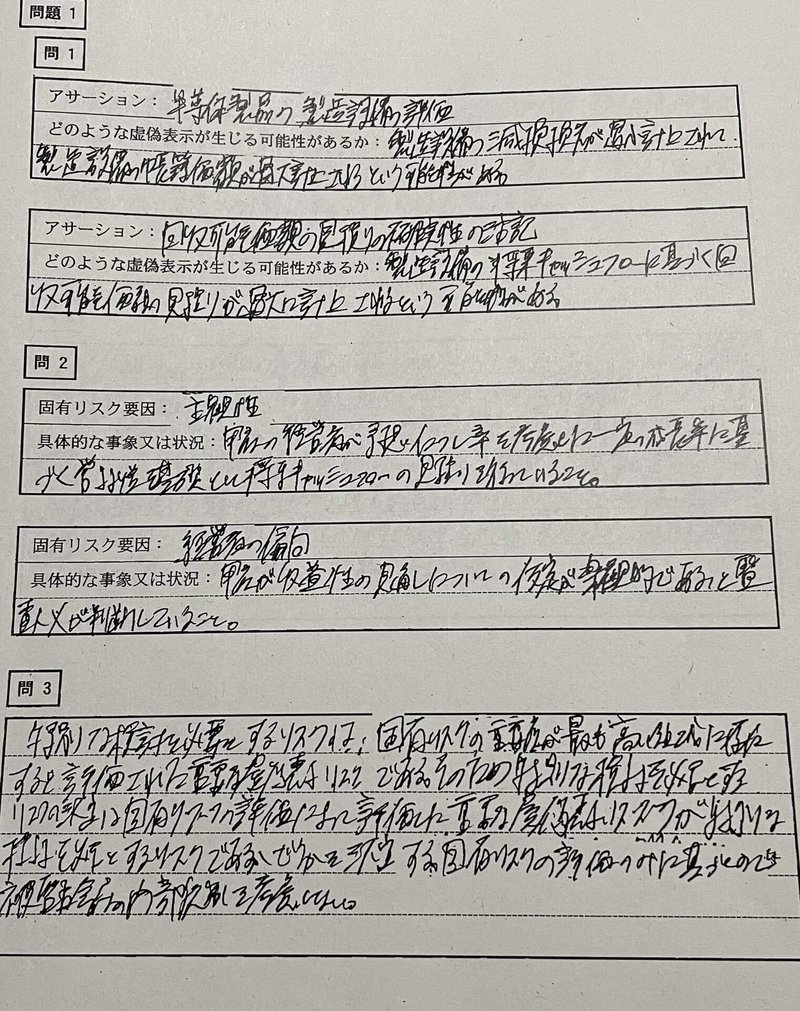 問題 1
問 1
アサーション：半導体製品の製造設備の評価
どのような虚偽表示が生じる可能性があるか：製造設備の減損損失が過小計上されて
製造設備の帳簿価額が過大計上されるという可能性がある
アサーション：回収可能価額の見積りの不確実性の注記
どのような虚偽表示が生じる可能性があるか：製造設備の将来キャッシュフローに基づく回
収可能価額の見積りが過大に計上されるという可能性がある。
問 2
固有リスク要因：主観性
具体的な事象又は状況：甲社の経営者が予想インフレ率を考慮した一定の成長率に基
づく を基礎として将来キャッシュフローの見積りを行っていること。
固有リスク要因：経営者の偏向
具体的な事象又は状況：甲社が収益性の見通しについての仮定が楽観的であると監
査人Xが判断していること。
問 3
特別な検討を必要とするリスクは、固有リスクの重要度が最も高い領域に存在
すると評価された重要な虚偽表示リスクである。そのため特別な検討を必要とする
リスクの決定は固有リスクの評価によって評価した重要な虚偽表示リスクが特別な
検討を必要とするリスクであるかどうかを決定する。固有リスクの評価のみに基づくので
被監査会社の内部統制を考慮しない。